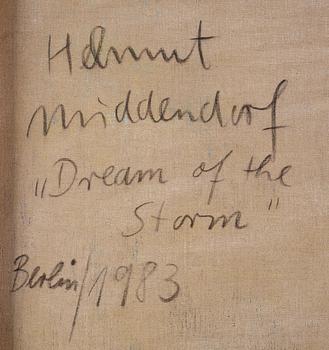 Helmut
Middendorf
„Dream of the
Storm"
Berlin/1983